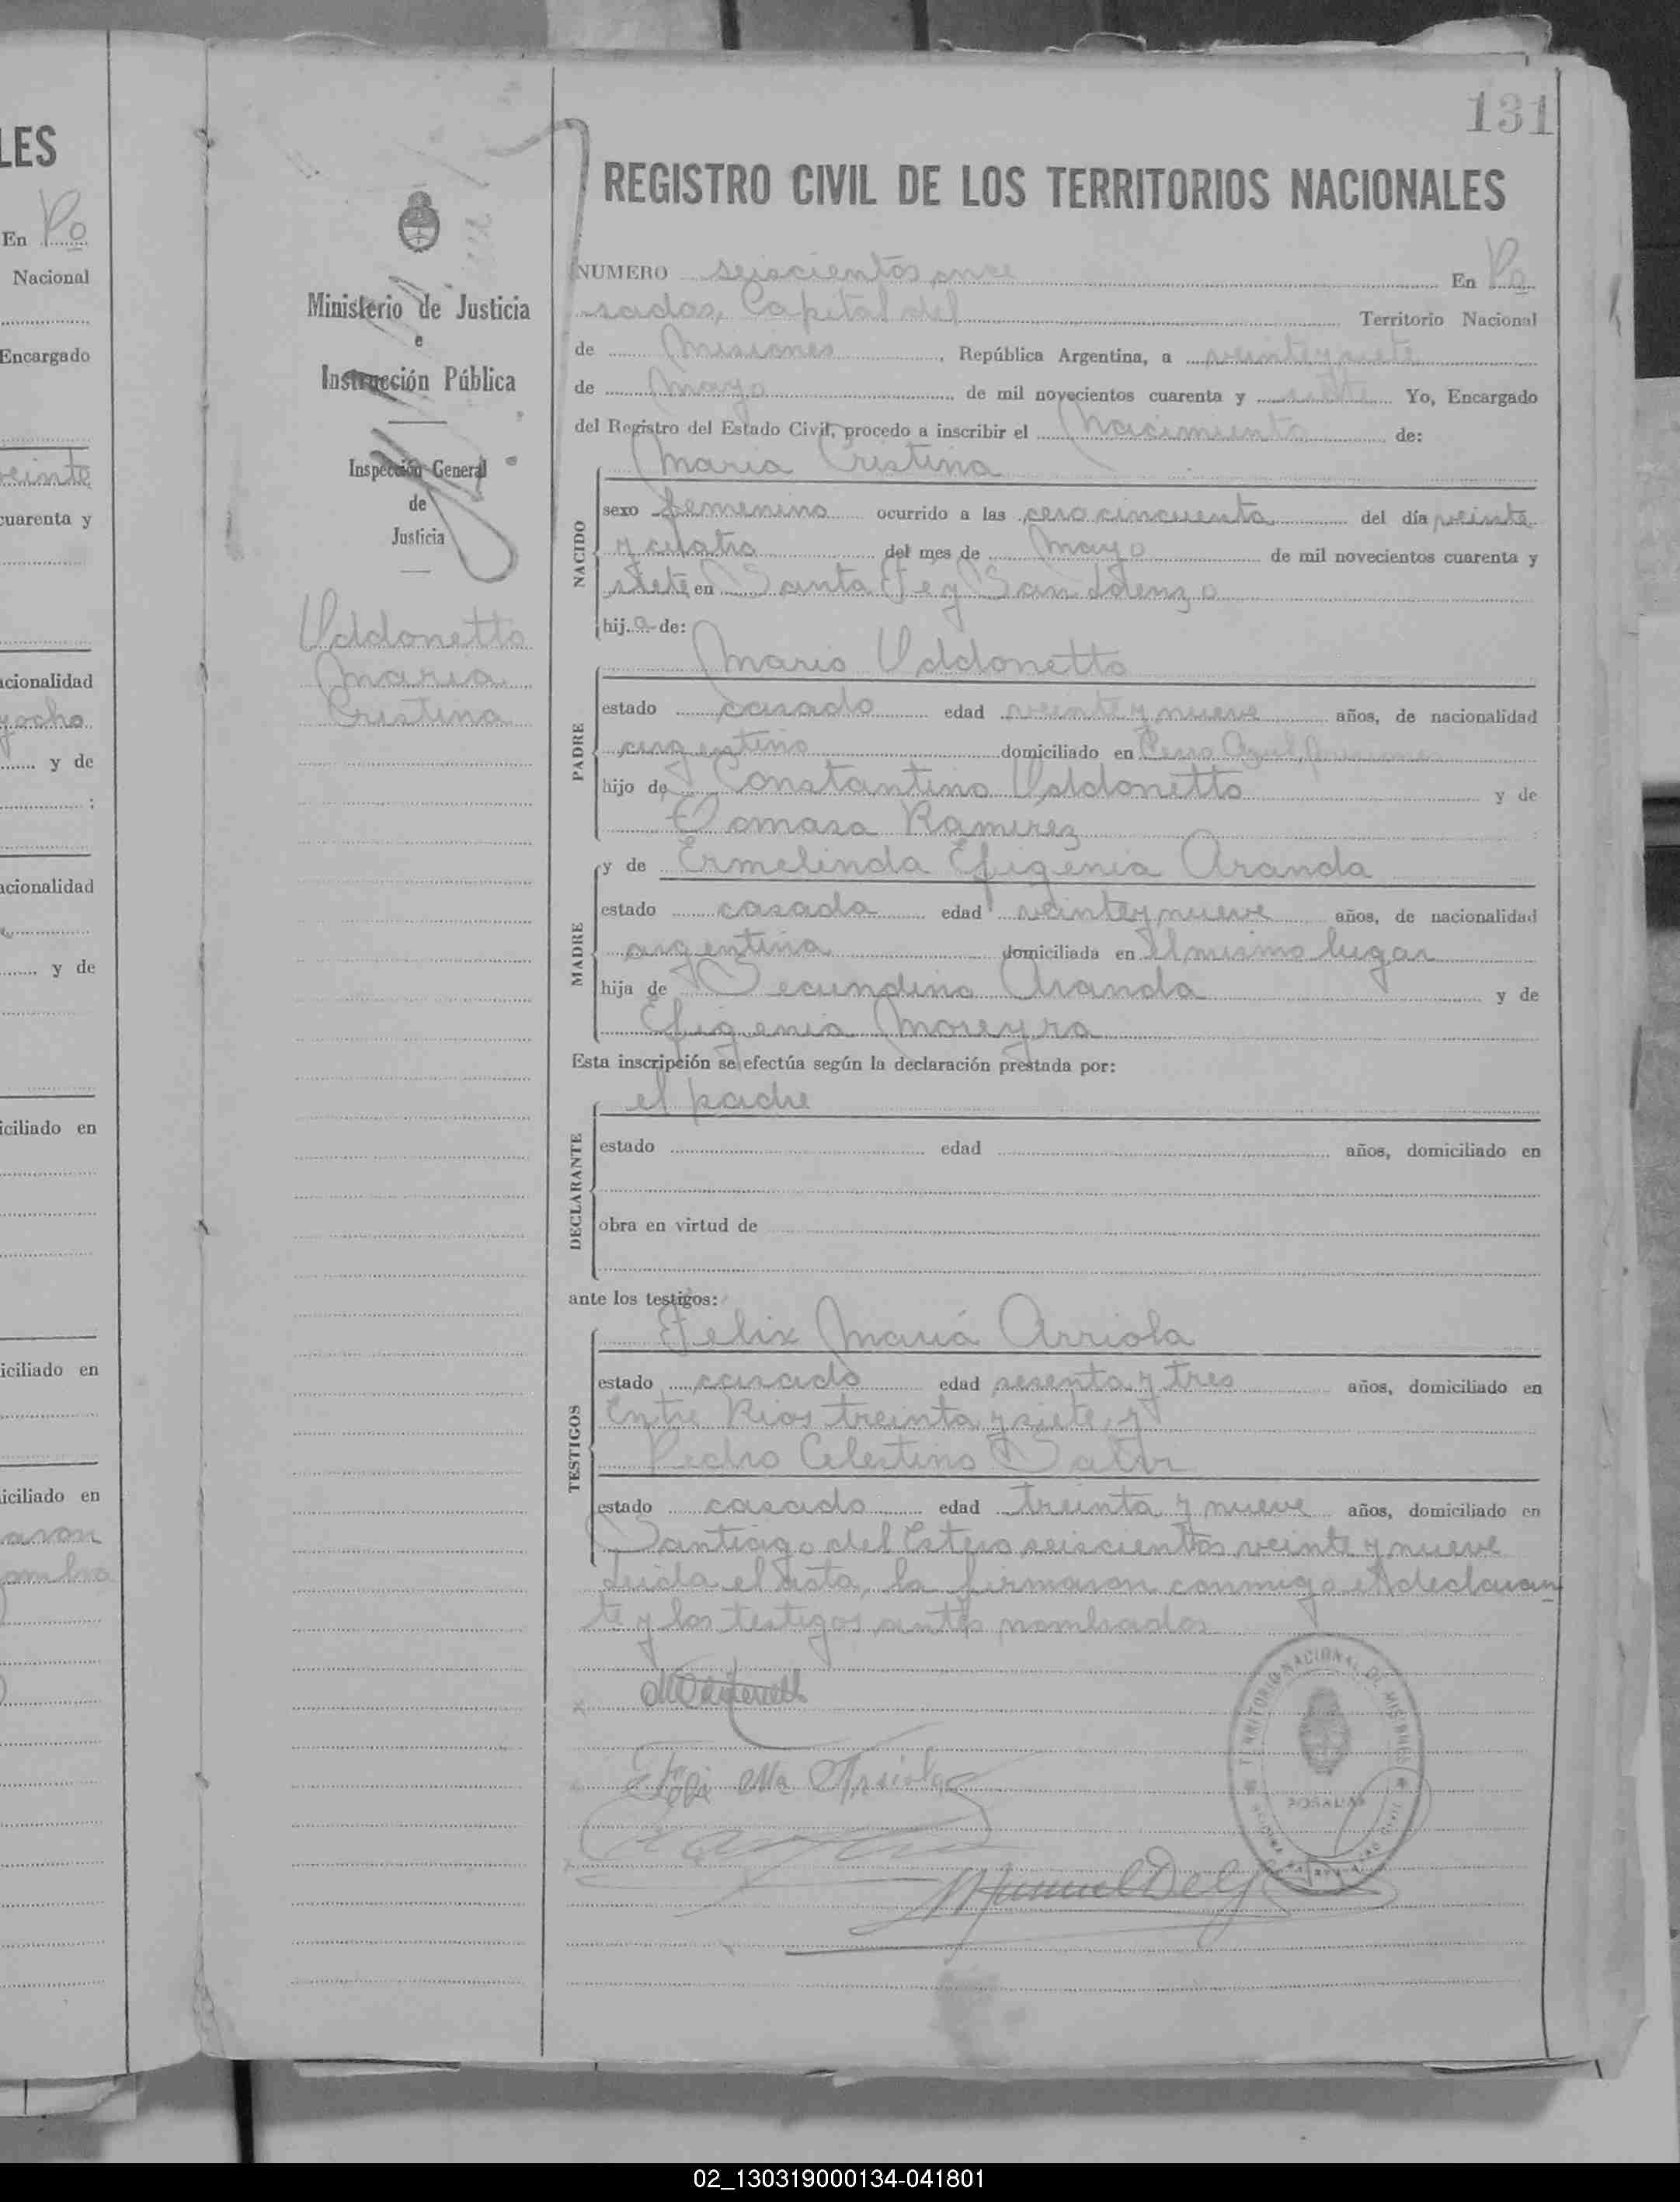 LES
En Po
Nacional
Encargado
veinte
cuarenta y
nacionalidad
y ocho
y de
nacionalidad
y de
domiciliado en
domiciliado en
domiciliado en
131
Ministerio de Justicia
e
Instrucción Pública
Inspección General
de
Justicia
Valdonetto
Maria
Cristina
REGISTRO CIVIL DE LOS TERRITORIOS NACIONALES
NUMERO seiscientos once En Po
sadas, Capital del Territorio Nacional
de Misiones, República Argentina, a veinte y siete
de Mayo de mil novecientos cuarenta y siete Yo, Encargado
del Registro del Estado Civil, procedo a inscribir el Nacimiento de:
Maria Cristina
NACIDO
sexo femenino ocurrido a las cero cincuenta del día veinte
y cuatro del mes de Mayo de mil novecientos cuarenta y
siete en Santa Fé y San Lorenzo
hija de:
PADRE
Mario Valdonetto
estado casado edad veinte y nueve años, de nacionalidad
argentino domiciliado en Cerro Azul,
hijo de Constantino Valdonetto y de
Tomasa Ramirez
MADRE
y de Ermelinda Efigenia Aranda
estado casada edad veinte y nueve años, de nacionalidad
argentina domiciliada en el mismo lugar
hija de Secundino Aranda y de
Efigenia Moreyra
Esta inscripción se efectúa según la declaración prestada por:
DECLARANTE
el padre
estado edad años, domiciliado en
obra en virtud de
ante los testigos:
TESTIGOS
Felix María Arriola
estado casado edad sesenta y tres años, domiciliado en
Entre Rios treinta y siete y
Pedro Celestino
estado casado edad treinta y nueve años, domiciliado en
Santiago del Estero seiscientos veinte y nueve
Leida el acta, la firmaron conmigo el declaran
te y los testigos antes nombrados
TERRITORIO NACIONAL DE MISIONES
POSADAS
02_130319000134-041801